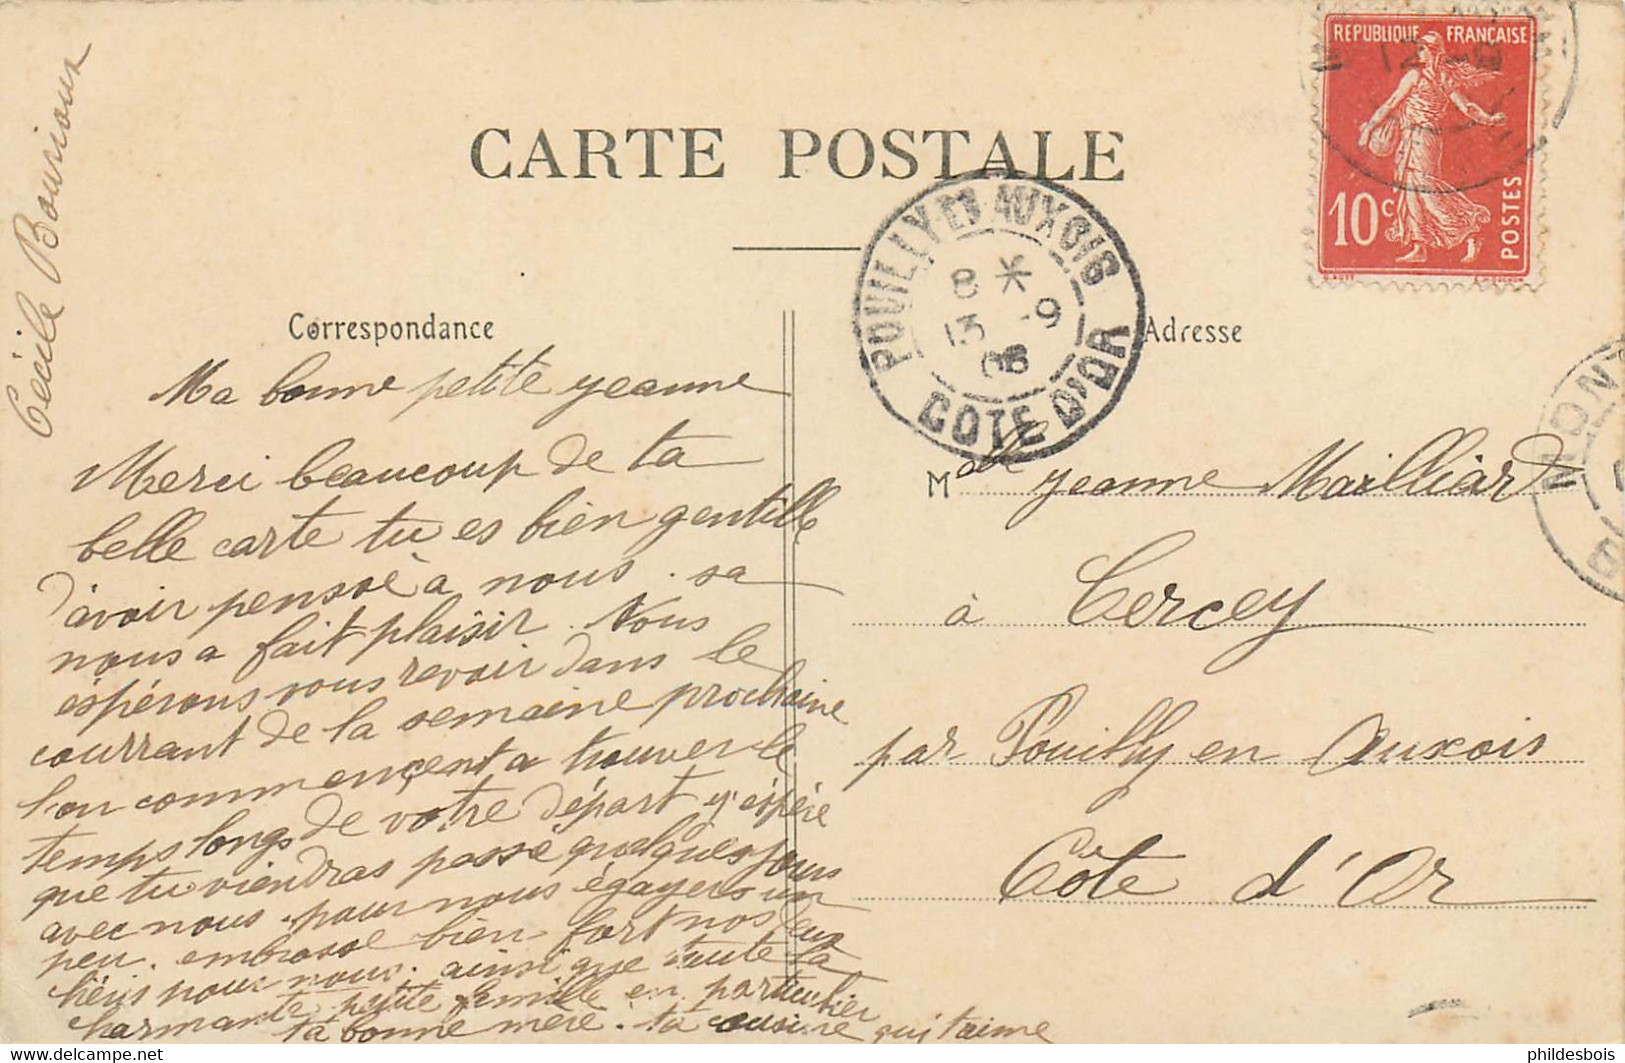 CARTE POSTALE
RÉPUBLIQUE FRANÇAISE
10c
POSTES
POUILLY EN AUXOIS
8 *
13 -9
08
COTE D'OR
12 -9
MONT
Cécile Bourrioux
Correspondance
Ma bonne petite yeanne
Merci beaucoup de ta
belle carte tu es bien gentille
d'avoir pensée à nous. sa
nous a fait plaisir. Nous
éspérons vous revoir dans le
courrant de la semaine prochaine
l'on commençent a trouver le
temps longs de votre départ y'éspére
que tu viendras passé quelques jours
avec nous. pour nous égayers un
peu. embrasse bien fort nos deux
pour nous. ainsi que toute ta
charmante petite famille en particulier
ta bonne mère. ta cousine qui t'aime
Adresse
Melle yeanne Mailliard
à Cercey
par Pouilly en Auxois
Côte d'Or
phildesbois